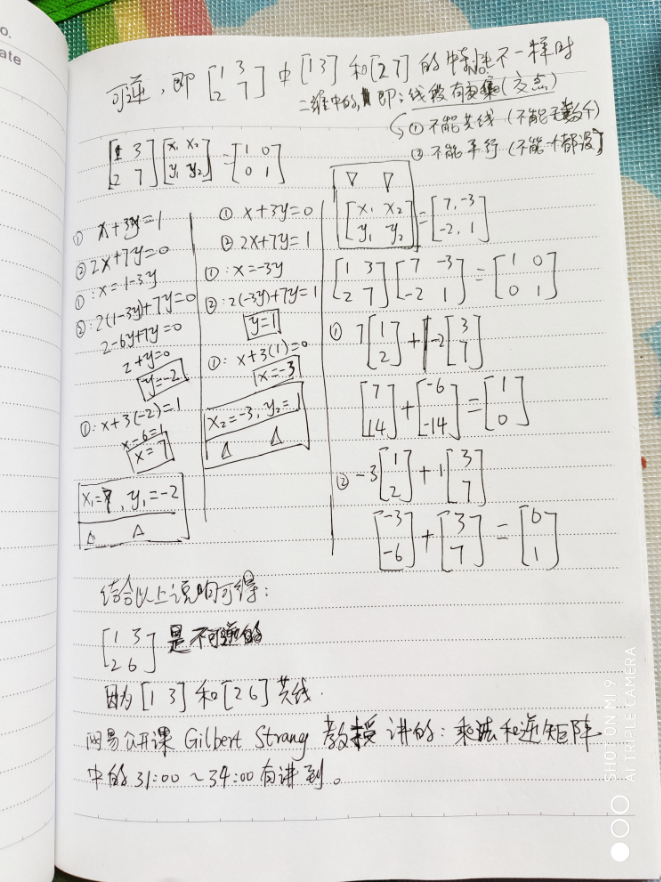 可逆，即 [1 3; 2 7] 中 [1 3] 和 [2 7] 的 不一样时
二维中的, 即: 线段有 (交点)
① 不能共线 (不能无数个)
② 不能平行 (不能一个都没)
[1 3; 2 7] [x₁ x₂; y₁ y₂] = [1 0; 0 1]
① x+3y=1
② 2x+7y=0
①: x=1-3y
②: 2(1-3y)+7y=0
2-6y+7y=0
2+y=0
y=-2
①: x+3(-2)=1
x-6=1
x=7
x₁=7, y₁=-2
△ △
① x+3y=0
② 2x+7y=1
①: x=-3y
②: 2(-3y)+7y=1
y=1
①: x+3(1)=0
x=-3
x₂=-3, y₂=1
△ △
▽ ▽
[x₁ x₂; y₁ y₂] = [7, -3; -2, 1]
[1 3; 2 7] [7 -3; -2 1] = [1 0; 0 1]
① 7[1; 2] + -2[3; 7]
[7; 14] + [-6; -14] = [1; 0]
② -3[1; 2] + 1[3; 7]
[-3; -6] + [3; 7] = [0; 1]
结合以上说明可得:
[1 3; 2 6] 是不可逆的
因为 [1 3] 和 [2 6] 共线.
网易公开课 Gilbert Strang 教授 讲的: 乘法和逆矩阵
中的 31:00 ~ 34:00 有讲到。
SHOT ON MI 9
AI TRIPLE CAMERA
o.
ate
No.